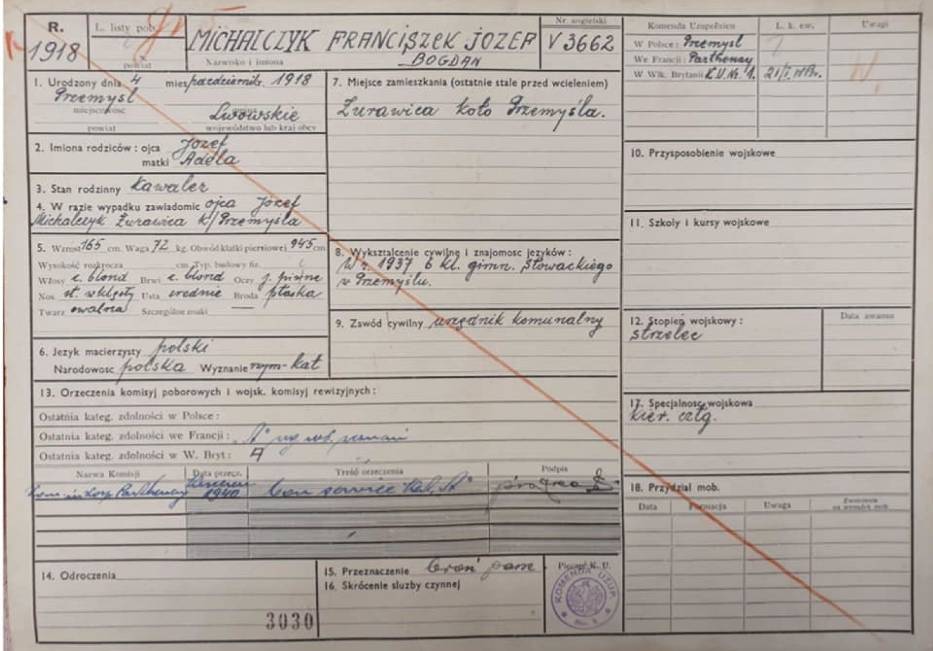 R.
1918
L. listy pob.
powiat
MICHALCZYK FRANCISZEK JOZEF
BOGDAN
Nazwisko i imiona
Nr. angielski
V 3662
Komenda Uzupełnień
L. k. ew.
Uwagi
W Polsce: Przemysl
We Francji: Parthenay
W Wlk. Brytanii K.U.Nr. 1.
1. Urodzony dnia 4 mies. październik. 1918
Przemysl
miejscowość
Lwowskie
gmina
powiat
województwo lub kraj obcy
2. Imiona rodziców: ojca Jozef
matki Adela
3. Stan rodzinny kawaler
4. W razie wypadku zawiadomic ojca Jozef
Michalczyk Żurawica k/Przemysla
5. Wzrost 165 cm. Waga 72 kg. Obwód klatki piersiowej 945 cm
Wysokość rozkrocza cm. Typ. budowy fiz.
Włosy c. blond Brwi c. blond Oczy j. piwne
Nos. st. wklęsły Usta srednie Broda płaska
Twarz owalna Szczególne znaki
6. Jezyk macierzysty polski
Narodowosc polska Wyznanie rzym-kat
7. Miejsce zamieszkania (ostatnie stale przed wcieleniem)
Żurawica koło Przemyśla.
8. Wykształcenie cywilne i znajomosc języków:
W r. 1937 6 kl. gimn. Słowackiego
w Przemyślu.
9. Zawód cywilny urzędnik komunalny
10. Przysposobienie wojskowe
11. Szkoly i kursy wojskowe
12. Stopień wojskowy:
strzelec
Data awansu
17. Specjalnosc wojskowa
kier. człg.
13. Orzeczenia komisyj poborowych i wojsk. komisyj rewizyjnych:
Ostatnia kateg. zdolności w Polsce:
Ostatnia kateg. zdolności we Francji: "A"
Ostatnia kateg. zdolności w W. Bryt: A
Nazwa Komisji
Data przecz.
Treść orzeczenia
Podpis
Parthenay
1940
bon service kat. "A"
18. Przydział mob.
Data
Formacja
Uwaga
14. Odroczenia
3030
15. Przeznaczenie broń panc
16. Skrócenie sluzby czynnej
Pieczęć K. U.
KOMENDA UZUP.
Nr. 1